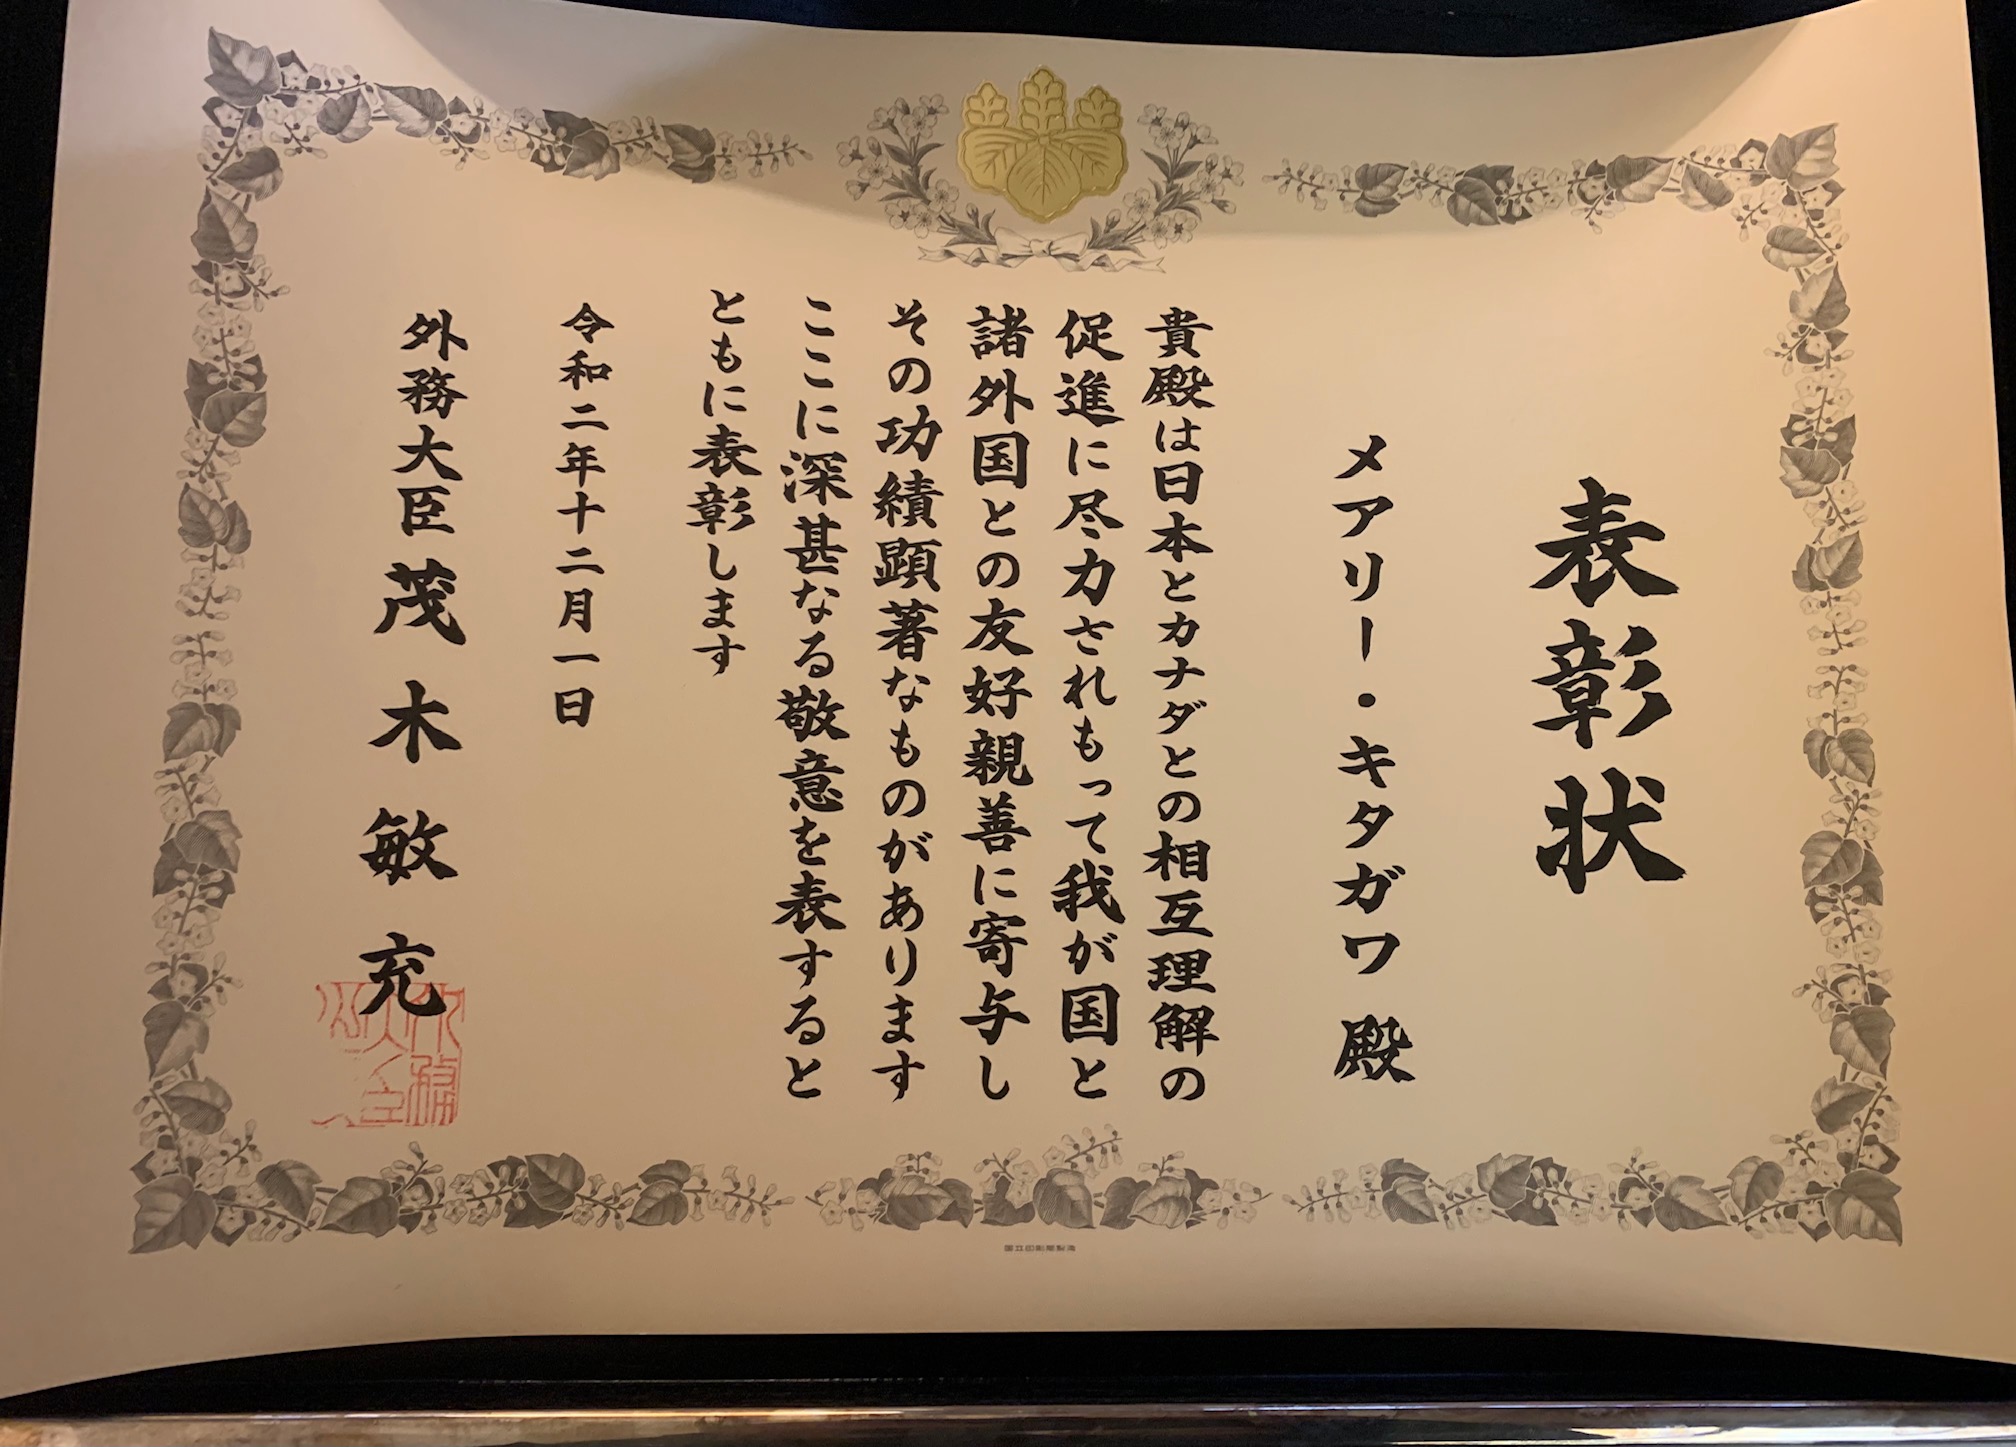 表彰状
メアリー・キタガワ 殿
貴殿は日本とカナダとの相互理解の
促進に尽力されもって我が国と
諸外国との友好親善に寄与し
その功績顕著なものがあります
ここに深甚なる敬意を表すると
ともに表彰します
令和二年十二月一日
外務大臣 茂木敏充
国立印刷局製造